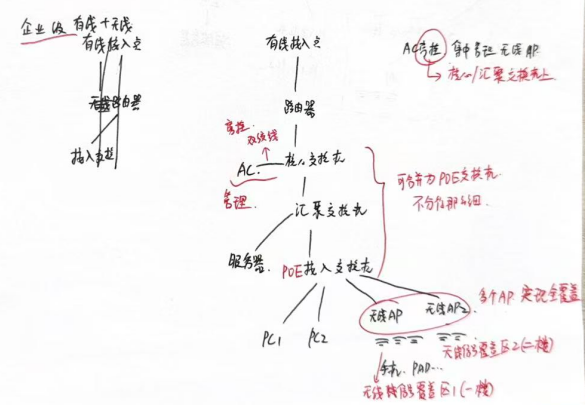 企业级 有线+无线
有线接入点
无线路由器
接入交换
有线接入点
路由器
旁挂
双绞线
AC
核心交换机
管理
汇聚交换机
服务器
POE接入交换机
PC1
PC2
无线AP
无线AP2
手机、PAD...
无线信号覆盖区1(一楼)
无线信号覆盖区2(二楼)
多个AP 实现全覆盖
可合并为POE交换机
不分那么细.
AC旁挂 集中管理 无线AP
核心/汇聚交换机上